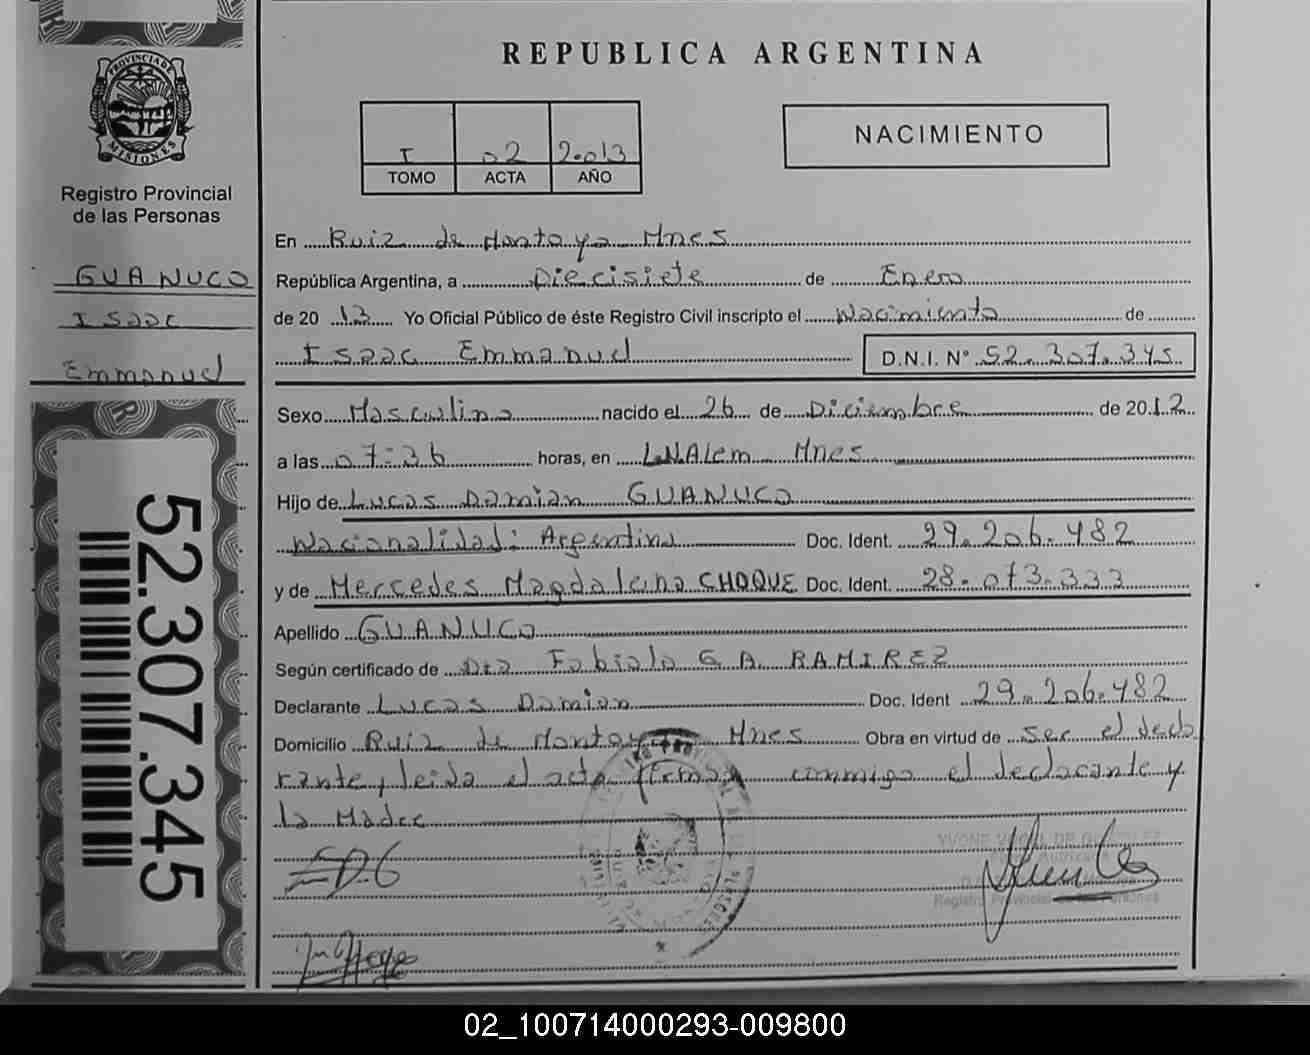 REPUBLICA ARGENTINA
PROVINCIA DE
MISIONES
Registro Provincial
de las Personas
GUANUCO
Isaac
Emmanuel
52.307.345
I 02 2.013
TOMO ACTA AÑO
NACIMIENTO
En Ruiz de Montoya Mnes
República Argentina, a Diecisiete de Enero
de 2013 Yo Oficial Público de éste Registro Civil inscripto el Nacimiento de
Isaac Emmanuel D.N.I. Nº 52.307.345
Sexo Masculino nacido el 26 de Diciembre de 2012
a las 07:36 horas, en L.N.Alem Mnes
Hijo de Lucas Damian GUANUCO
Nacionalidad: Argentina Doc. Ident. 29.206.482
y de Mercedes Magdalena CHOQUE Doc. Ident. 28.073.333
Apellido GUANUCO
Según certificado de Dra Fabiola G A. RAMIREZ
Declarante Lucas Damian Doc. Ident 29.206.482
Domicilio Ruiz de Montoya Mnes Obra en virtud de ser el decla
rante y leida el acta firman conmigo el declarante y
la Madre
Registro Provincial de las Personas
02_100714000293-009800